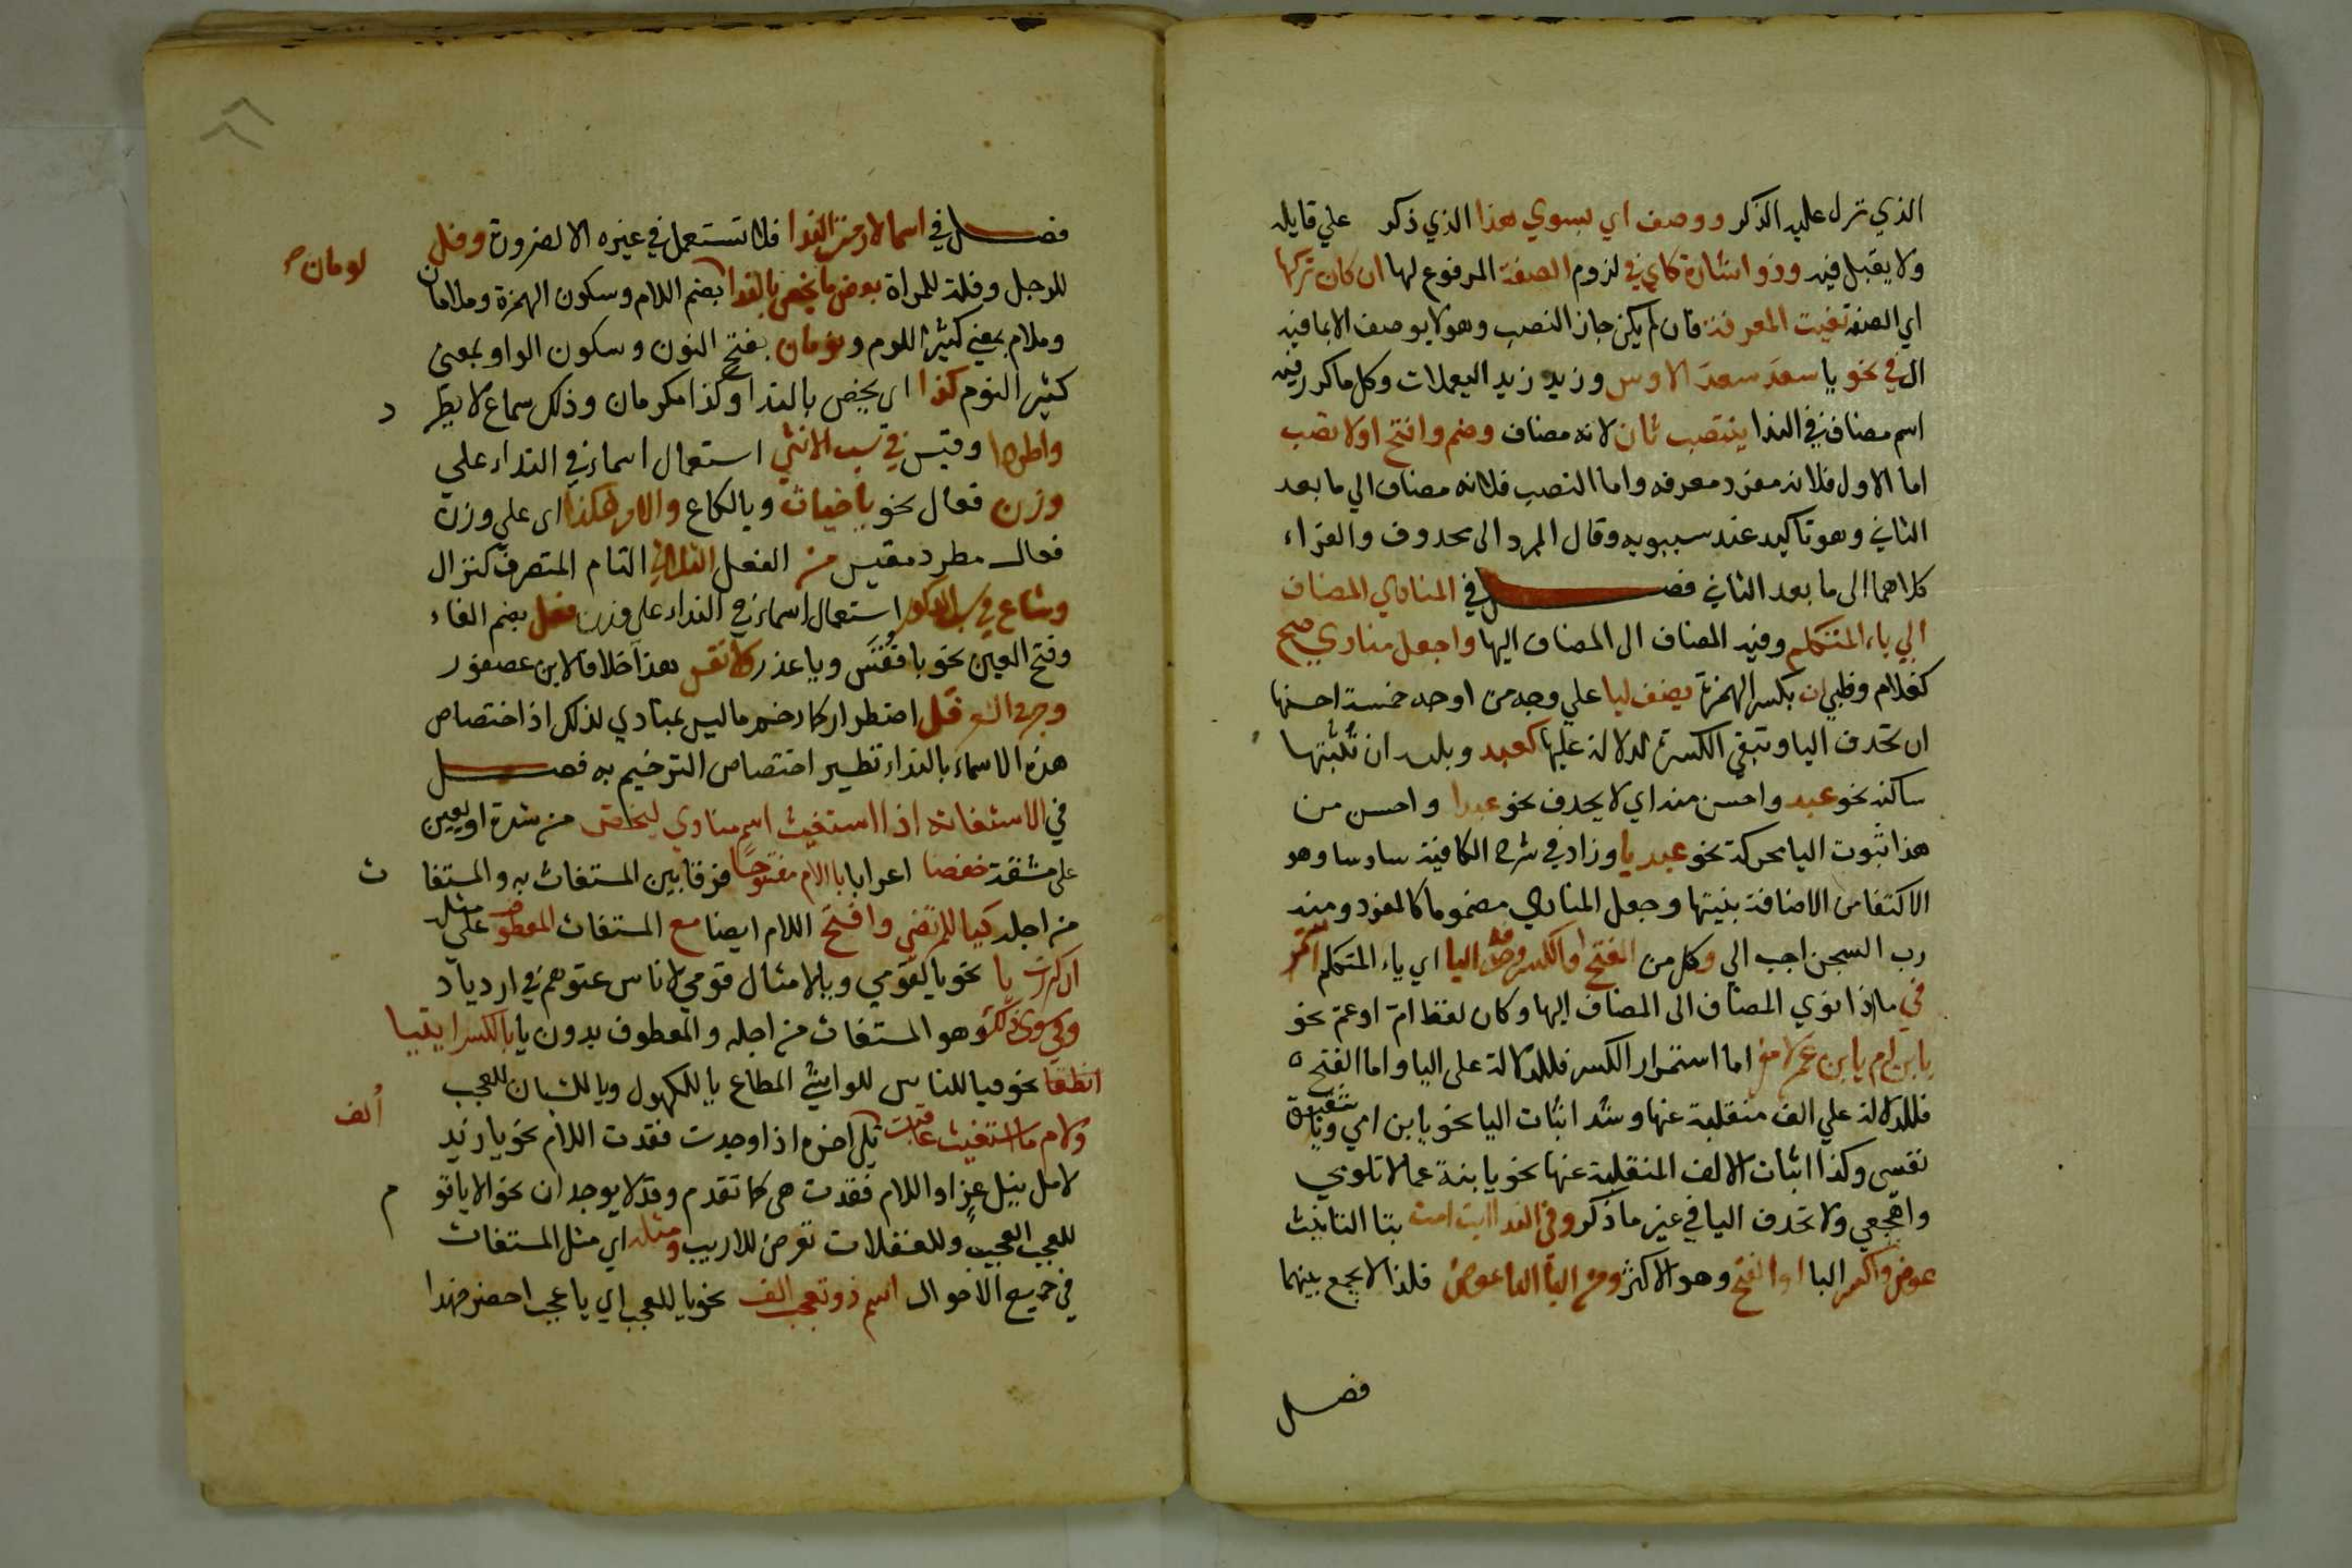 الذي نزل عليه الذكر ووصف اي بسوي هذا الذي ذكر علي قايله
ولا يقبل فيه وذو اشارة كاي في لزوم الصفة المرفوع لها ان كان تركها
اي الصفه تفيت المعرفة فان لم يكن جاز النصب وهو لا يوصف الا بما فيه
ال في نحو يا سعد سعد الاوس وزيد زيد اليعملات وكل ما كرر فيه
اسم مضاف في الندا ينتصب ثان لانه مضاف وضم وافتح اولا تصب
اما الاول فلانه مفرد معرفه واما النصب فلانه مضاف الي ما بعد
الثاني وهو تاكيد عند سيبويه وقال المبرد الى محذوف والفراء
كلاهما الى ما بعد الثاني فصل في المنادي المضاف
الي ياء المتكلم وفيه المضاف الى المضاف اليها واجعل منادي صح
كغلام وظبي ان بكسر الهمزة يضف ليا علي وجه من اوجه خمسة احسنها
ان تحذف اليا وتبقي الكسرة للدلالة عليها كعبد ويليه ان تثبتها
ساكنة نحو عبدي واحسن منه اي لا يحذف نحو عبدا واحسن من
هذا ثبوت اليا محركة نحو عبديا وزاد في شرح الكافية سادسا وهو
الاكتفا من الاضافة بنيتها وجعل المنادي مضموما كالمفرد ومنه
رب السجن احب الي وكل من الفتح او الكسر وحذف اليا اي ياء المتكلم استمر
في ما اذا نودي المضاف الى المضاف اليها وكان لفظ ام او عم نحو
يا بن ام يا بن عم لا مفر اما استمرار الكسر فللدلالة على اليا واما الفتح
فللدلالة علي الف منقلبة عنها وشذ اثبات اليا نحو يا بن امي ويا شقيق
نفسي وكذا اثبات الالف المنقلبة عنها نحو يا بنة عما لا تلومي
واهجعي ولا تحذف اليا في غير ما ذكر وفي الندا ابت امت بتا التانيث
عوض واكسر التا او افتح وهو الاكثر ومن اليا التا عوض فلذا لا يجمع بينهما
فصل
فصل في اسما لازمت الندا فلا تستعمل في غيره الا لضرورة وفل
لومان
للرجل وفلة للمراة بعض ما يخص بالندا بضم اللام وسكون الهمزة وملامان
وملام بمعني كثير اللوم ونومان بفتح النون وسكون الواو بمعنى
كثير النوم كذا اي يخص بالندا وكذا مكرمان وذلك سماع لا يطر
د
واطردا وقيس في سب الانثي استعمال اسماء في النداء علي
وزن فعال نحو يا خباث ويا لكاع والامر هكذا اى علي وزن
فعال مطرد مقيس من الفعل الثلاثي التام المتصرف كنزال
وشاع في سب الذكور استعمال اسماء في النداء علي وزن فعل بضم الفاء
وفتح العين نحو يا فسق ويا غدر ولا تقس هذا خلافا لابن عصفور
وجر في الشعر فل اضطرار كما رخم ما ليس بمنادي لذلك اذ اختصاص
هذه الاسماء بالنداء نظير اختصاص الترخيم به فصل
في الاستغاثه اذا استغيث اسم منادي ليخلص من شدة او يعين
على مشقة خفضا اعرابا باللام مفتوحا فرقا بين المستغاث به والمستغا
ث
من اجله كيا للمرتضي وافتح اللام ايضا مع المستغاث المعطوف علي مثله
ان كررت يا نحو يا لقومي ويا لامثال قومي لاناس عتوهم في ازدياد
وفي سوى ذلك وهو المستغاث من اجله والمعطوف بدون يا بالكسر ايتيا
انطقا نحو فيا للناس للواشي المطاع يا للكهول ويا للشبان للعجب
ولام ما استغيث عاقبت
ألف
تلي اخره اذا وجدت فقدت اللام نحو يا زيد
لامل نيل عز او اللام فقدت هي كما تقدم وقد لا يوجدان نحو الا يا قو
م
للعجب العجيب وللغفلات تعرض للاريب ومثله اي مثل المستغاث
في جميع الاحوال اسم ذو تعجب الف نحو يا للعجب اي يا عجب احضر فهذا